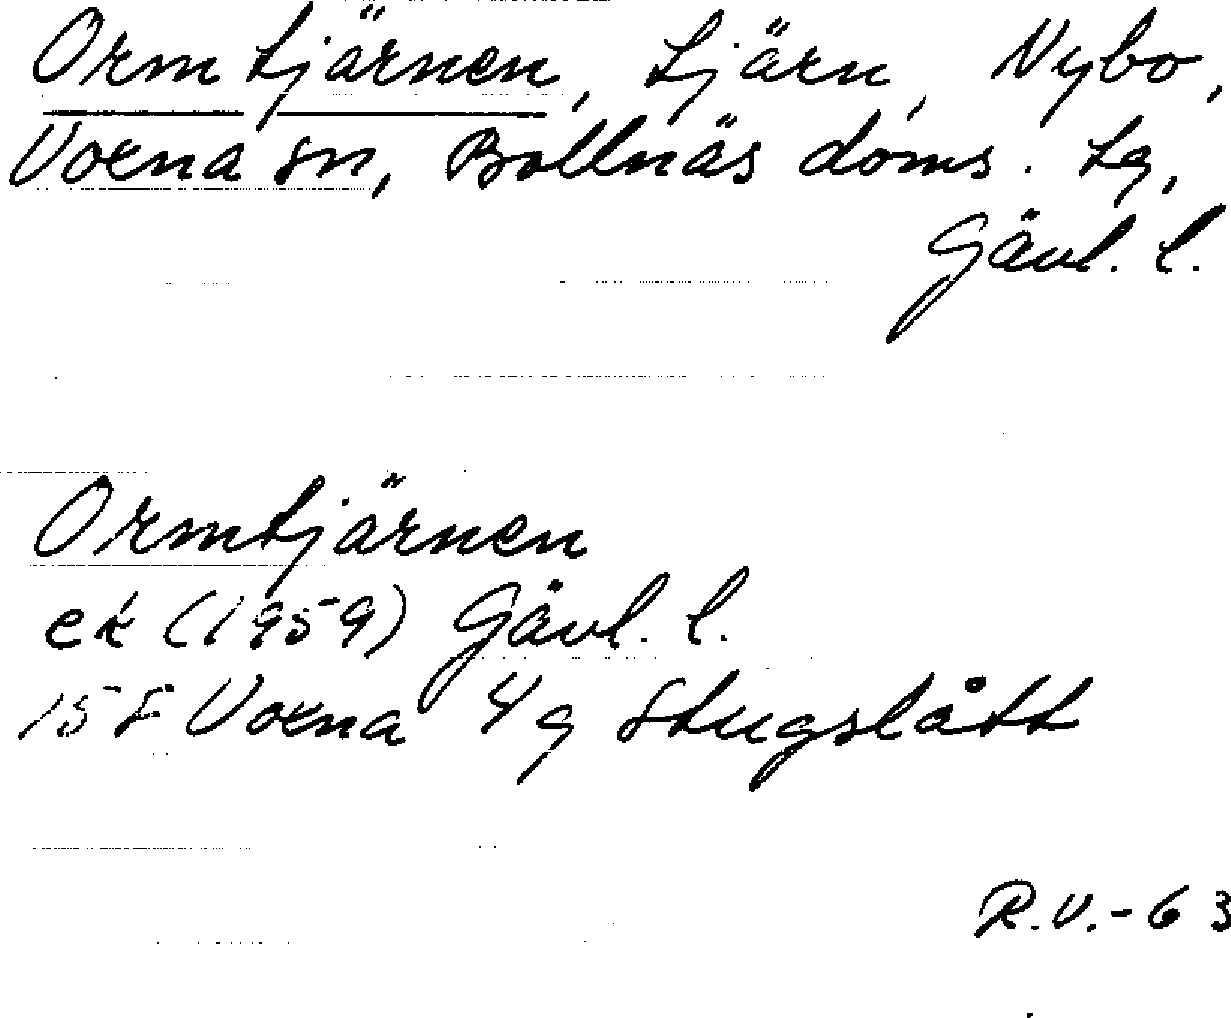 Ormtjärnen, tjärn, Nybo,
Voxna sn, Bollnäs doms. tg,
Gävl. l.
Ormtjärnen
ek (1959) Gävl. l.
15 F Voxna 4 g Stugslått
R.V.-63